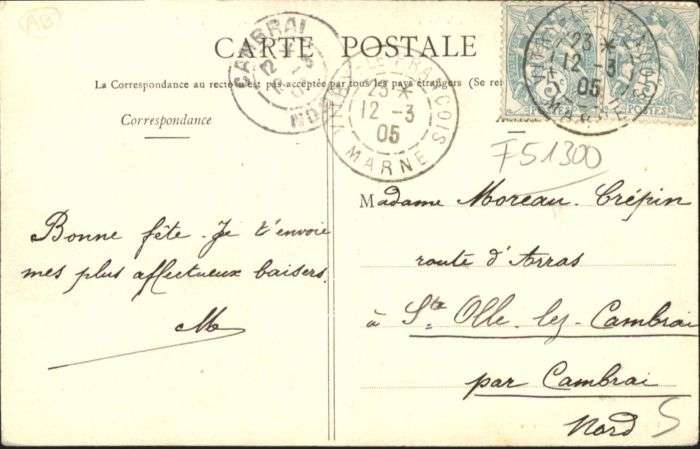 AB
CARTE POSTALE
La Correspondance au recto n'est pas acceptée par tous les pays étrangers (Se re
Correspondance
CAMBRAI
NORD
VITRY-LE-FRANCOIS
23 *
12 - 3
05
MARNE
VITRY-LE-FRANCOIS
23 *
12 - 3
05
MARNE
F51300
Bonne fête. Je t'envoie
mes plus affectueux baisers.
M
Madame Moreau-Crépin
route d'Arras
à Ste Olle-lez-Cambrai
par Cambrai
Nord
5